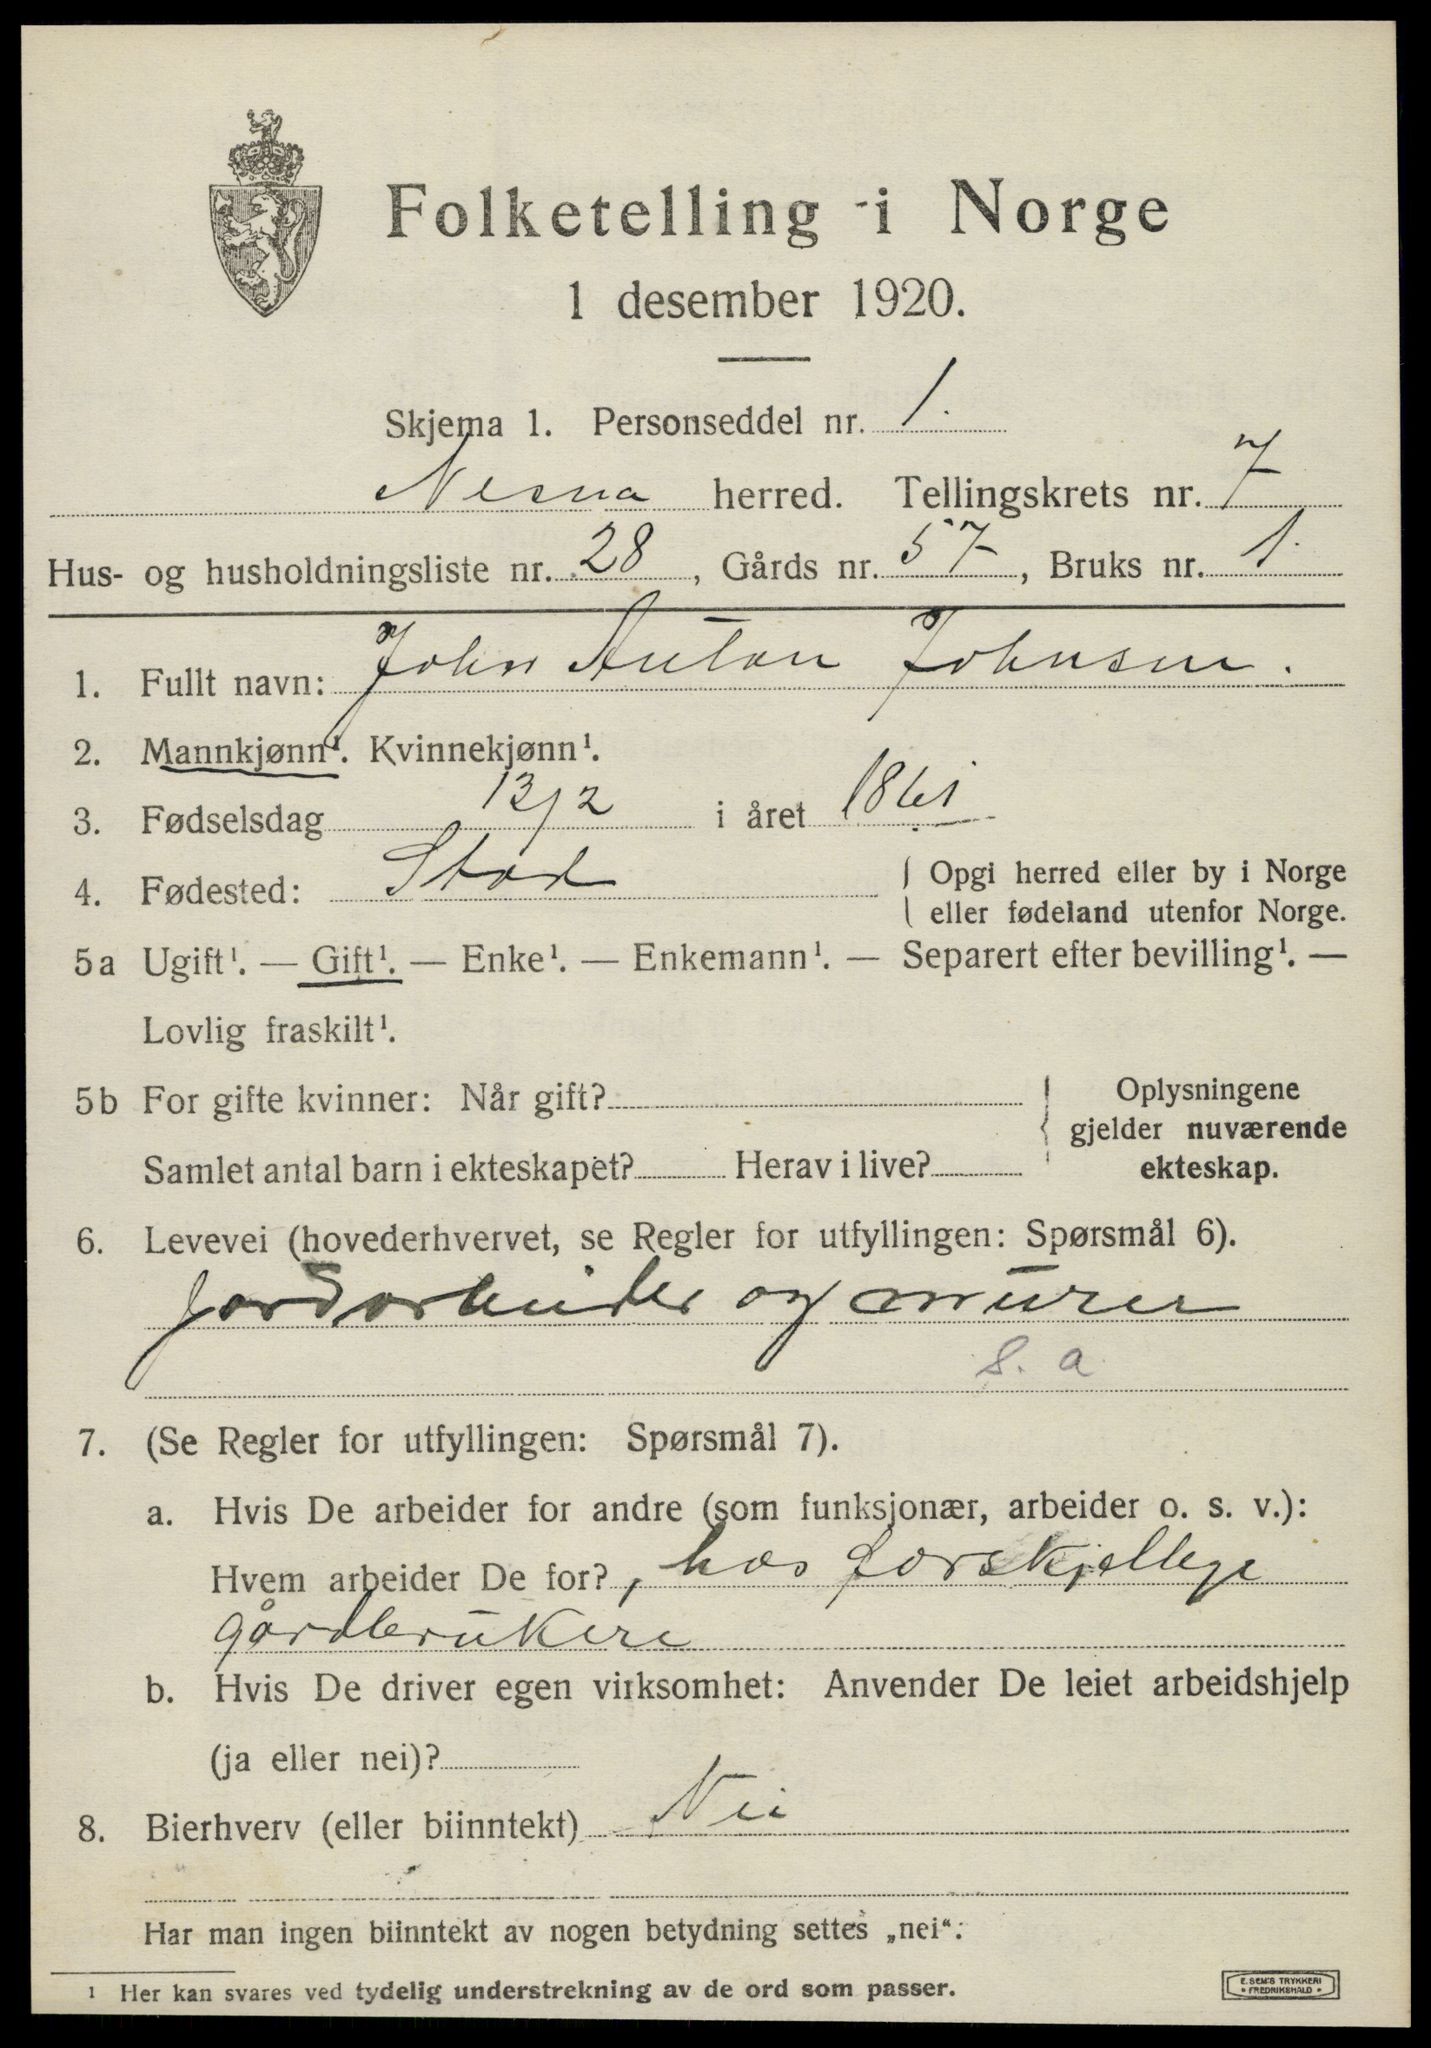 Folketelling i Norge
1 desember 1920.
Skjema 1. Personseddel nr. 1.
Nesna herred. Tellingskrets nr. 7
Hus- og husholdningsliste nr. 28, Gårds nr. 57, Bruks nr. 1.
1. Fullt navn: John Anton Johnsen.
2. Mannkjønn¹. Kvinnekjønn¹.
3. Fødselsdag 13/2 i året 1861
4. Fødested: Stod { Opgi herred eller by i Norge
eller fødeland utenfor Norge.
5a Ugift¹. — Gift¹. — Enke¹. — Enkemann¹. — Separert efter bevilling¹. —
Lovlig fraskilt¹.
5b For gifte kvinner: Når gift? { Oplysningene
gjelder nuværende
Samlet antal barn i ekteskapet? Herav i live? ekteskap.
6. Levevei (hovederhvervet, se Regler for utfyllingen: Spørsmål 6).
Jordarbeider og murer
S. a
7. (Se Regler for utfyllingen: Spørsmål 7).
a. Hvis De arbeider for andre (som funksjonær, arbeider o. s. v.):
Hvem arbeider De for?, hos forskjellige
gårdbrukere
b. Hvis De driver egen virksomhet: Anvender De leiet arbeidshjelp
(ja eller nei)?
8. Bierhverv (eller biinntekt) Nei
Har man ingen biinntekt av nogen betydning settes „nei“:
¹ Her kan svares ved tydelig understrekning av de ord som passer.
E. SEM'S TRYKKERI
• FREDRIKSHALD •